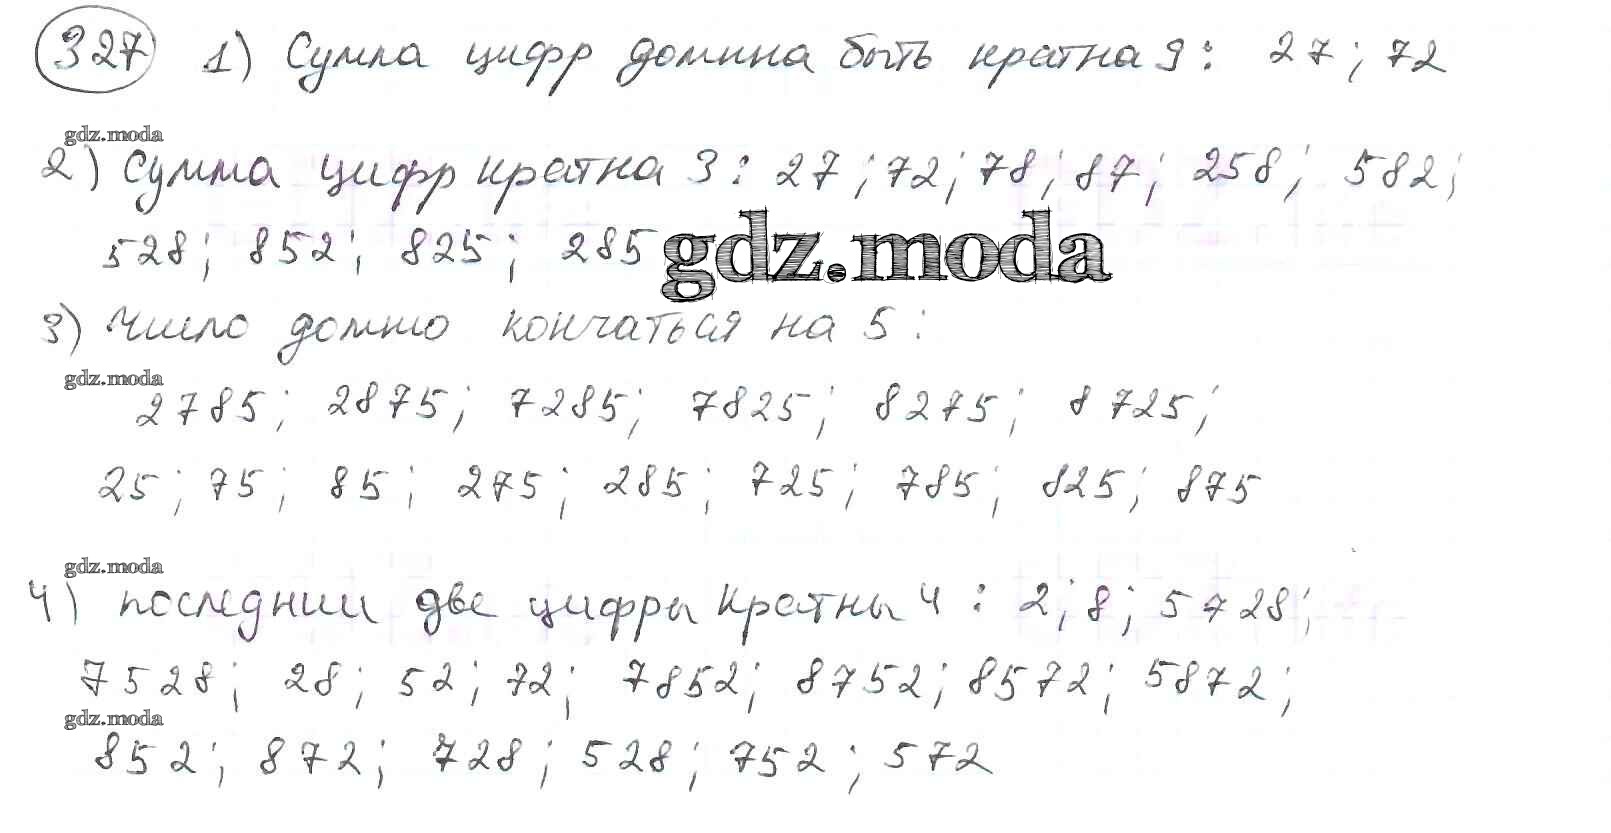 327 1) Сумма цифр должна быть кратна 9: 27; 72
gdz.moda
2) Сумма цифр кратна 3: 27; 72; 78; 87; 258; 582;
528; 852; 825; 285
gdz.moda
3) Число должно кончаться на 5:
gdz.moda
2785; 2875; 7285; 7825; 8275; 8725;
25; 75; 85; 275; 285; 725; 785; 825; 875
gdz.moda
4) последнии две цифры кратны 4: 2; 8; 5728;
7528; 28; 52; 72; 7852; 8752; 8572; 5872;
gdz.moda
852; 872; 728; 528; 752; 572